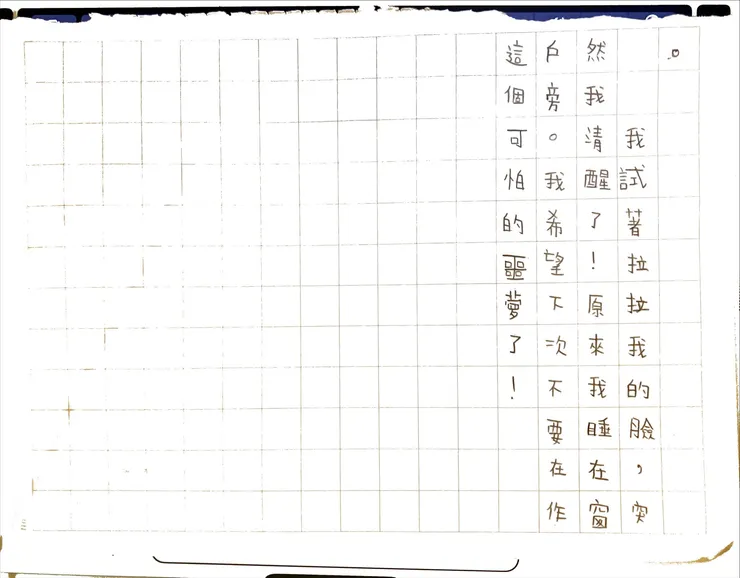 。
我試著拉拉我的臉，突
然我清醒了！原來我睡在窗
戶旁。我希望下次不要在作
這個可怕的噩夢了！